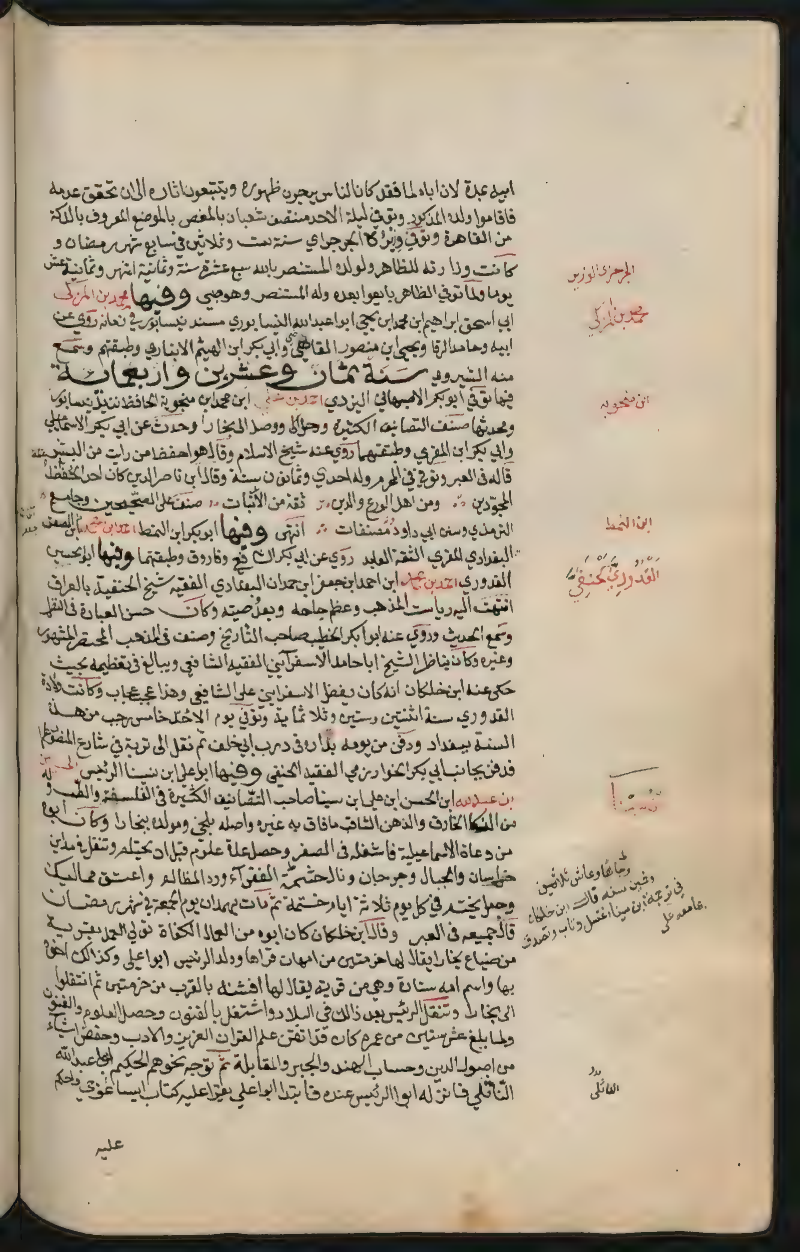 ابيه عبدة لان اباه لما فقد كان الناس يرجون ظهوره ويتتبعون اثاره الى ان تحقق عدمه
فاقاموا ولده المذكور وتوفي ليلة الاحد منتصف شعبان بالمقص بالموضع المعروف بالدكة
من القاهرة وتوفي وزيره الجرجراي سنة ست وثلاثين في سابع شهر رمضان و
كانت وزارته للظاهر ولولده المستنصر بالله سبع عشرة سنة وثمانية اشهر وثمانية عشر
يوما ولما توفي الظاهر بايعوا بعده وله المستنصر وهو صبي وفيها محمد بن المزكي
ابي اسحق ابراهيم ابن محمد ابن يحيى ابو عبد الله النيسابوري مسند نيسابور في زمانه روى عن
ابيه وحامد الرفا ويحيى ابن منصور القاضي وابي بكر ابن الهيثم الانباري وطبقتهم وسمع
منه الشيروي سنة ثمان وعشرين واربعمائة
فيها توفي ابو بكر الاصبهاني اليزدي احمد بن علي ابن محمد ابن منجويه الحافظ نزيل نيسابور
ومحدثها صنف التصانيف الكثيرة ورحل ووصل الى بخارا وحدث عن ابي بكر الاسماعيلي
وابي بكر ابن المقري وطبقتهما روى عنه شيخ الاسلام وقال هو احفظ من رايت من البشر
قاله في العبر وتوفي في المحرم وله احدى وثمانون سنة وقال ابن ناصر الدين كان احد الحفاظ
المجودين ومن اهل الورع والدين ثقة من الاثبات صنف على الصحيحين وجامع
الترمذي وسنن ابي داود مصنفات انتهى وفيها ابو بكر ابن النمط احمد بن
البغدادي المقري الثقة العابد روى عن ابي بكر الشافعي وفاروق وطبقتهما وفيها ابو الحسين
القدوري احمد بن محمد ابن احمد ابن جعفر ابن حمدان البغدادي الفقيه شيخ الحنفية بالعراق
انتهت اليه رياست المذهب وعظم جاهه وبعد صيته وكان حسن العبارة في النظر
وسمع الحديث وروى عنه ابو بكر الخطيب صاحب التاريخ وصنف في المذهب المختصر المشهور
وغيره وكان يناظر الشيخ ابا حامد الاسفرايني الفقيه الشافعي ويبالغ في تعظيمه بحيث
حكى عنه ابن خلكان انه كان يفضل الاسفرايني على الشافعي وهذا عجب عجاب وكانت ولادة
القدوري سنة اثنتين وستين وثلاثماية وتوفي يوم الاحد خامس رجب من هذه
السنة ببغداد ودفن من يومه بداره في درب ابي خلف ثم نقل الى تربة في شارع المنصور
فدفن بجانب ابي بكر الخوارزمي الفقيه الحنفي وفيها ابو علي ابن سينا الرئيس
بن عبد الله ابن الحسن ابن علي ابن سينا صاحب التصانيف الكثيرة في الفلسفة والطب و
من الذكا الخارق والذهن الثاقب مافاق به غيره واصله بلخي ومولده ببخارا وكان ابوه
من دعاة الاسماعيلية فاشغله في الصغر وحصل عدة علوم قبل ان يحتلم وتنقل في مداين
خراسان والجبال وجرجان ونال حشمة الفقراء ورد المظالم واعتق مماليك
وجعل يختم في كل يوم ثلاثة ايام ختمة ثم مات بهمدان يوم الجمعة في شهر رمضان
قال جميعه في العبر وقال ابن خلكان كان ابوه من العمال الكفاة تولى العمل بقرية
من ضياع بخارا يقال لها خرمتين من امهات قراها وولد الرئيس ابو علي وكذلك اخوه
بها واسم امه ستارة وهي من قرية يقال لها افشنه بالقرب من خرمتين ثم انتقلوا
الى بخارا وتنقل الرئيس بعد ذالك في البلاد واشتغل بالفنون وحصل العلوم والفنون
ولما بلغ عشر سنين من عمره كان قد اتقن علم القران العزيز والادب وحفض اشياء
من اصول الدين وحساب الهند والجبر والمقابلة ثم توجه نحوهم الحكيم ابو عبد الله
الناتلي فانزله ابو الرئيس عنده فابتدا ابو علي يقرا عليه كتاب ايساغوجي واحكم
عليه
الجرجري الوزير
محمد بن المزكي
ابن منجويه
ابن النمط
القدوري الحنفي
بن سينا
سنة قال ابن خلكان
في ترجمة ابن سينا اغتسل وتاب وتصدق
بما معه على
الناتلي